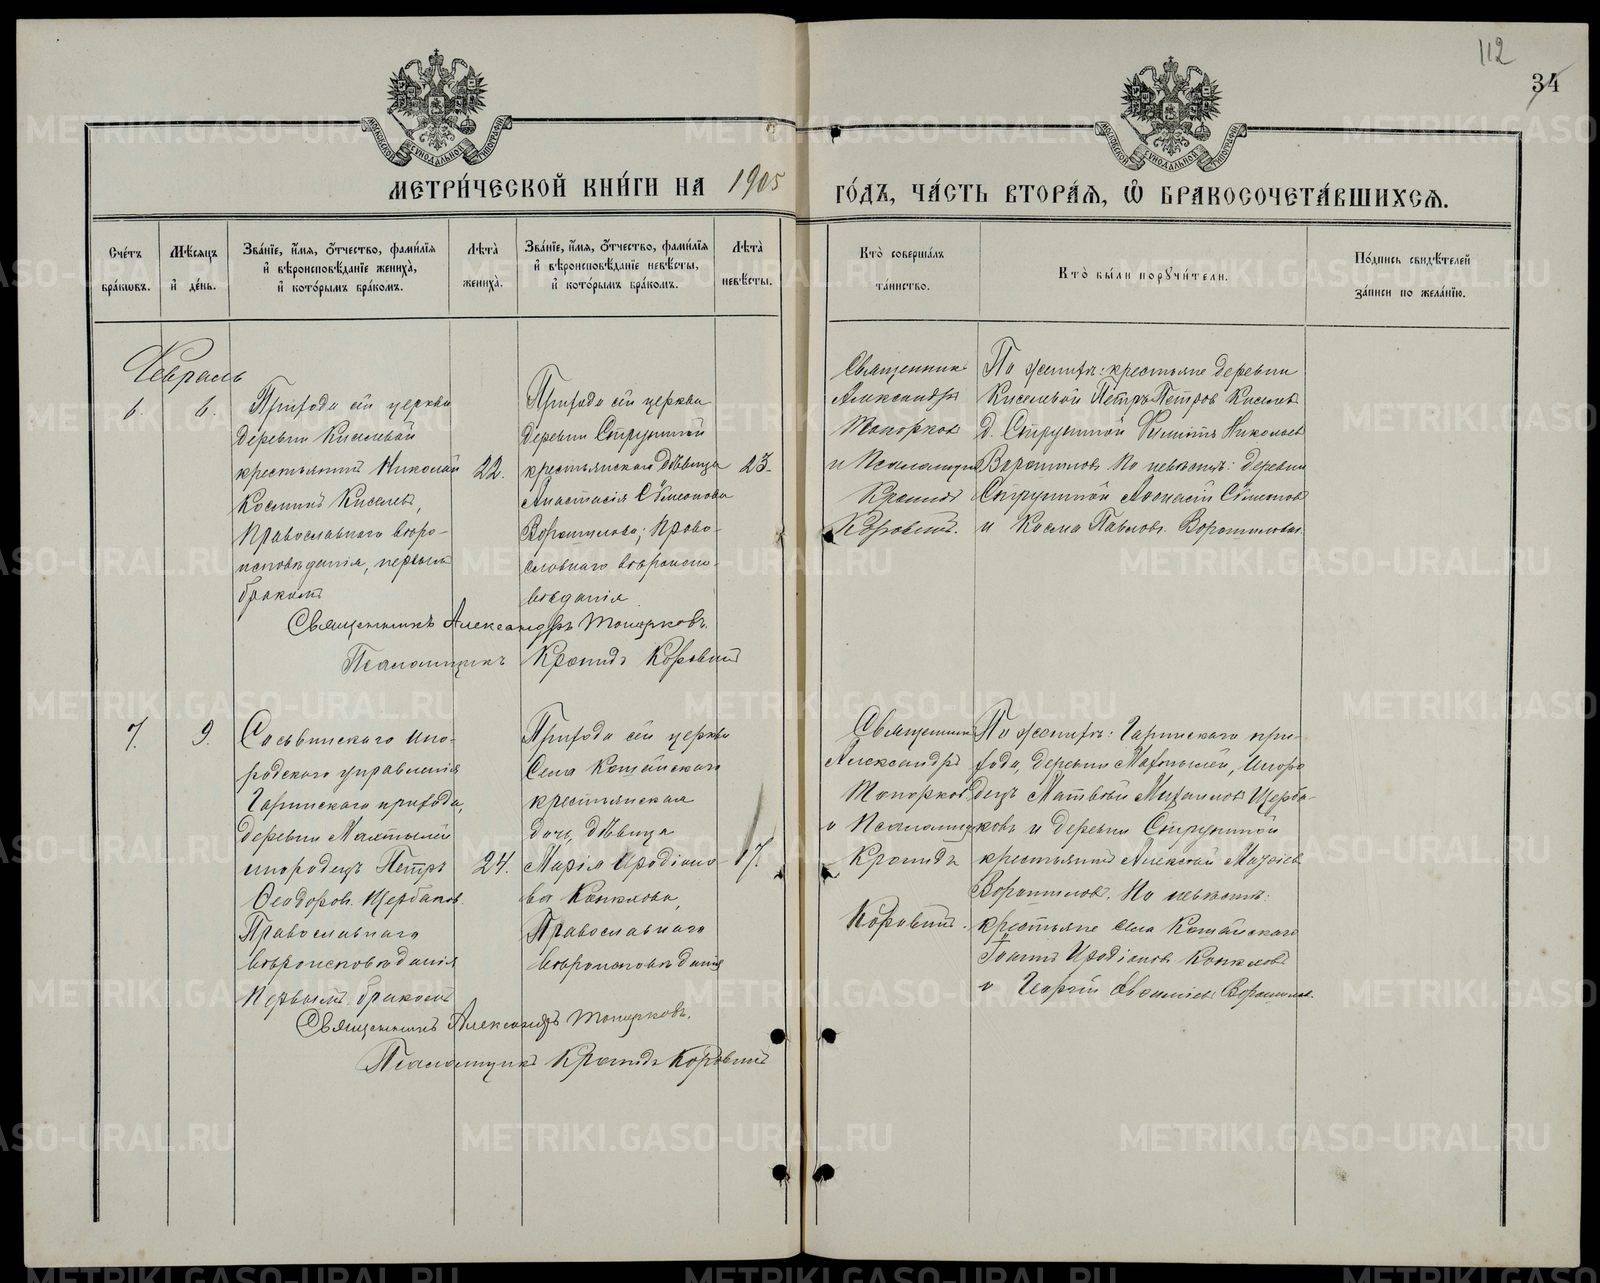 112
34
МОСКОВСКОЙ СѴНОДАЛЬНОЙ ТИПОГРАФІИ
МОСКОВСКОЙ СѴНОДАЛЬНОЙ ТИПОГРАФІИ
МЕТРИ́ЧЕСКОЙ КНИ́ГИ НА 1905
ГО́ДЪ, ЧА́СТЬ ВТОРА́Я, Ѽ БРАКОСОЧЕТА́ВШИХСЯ.
Сче́тъ
бра́ковъ.
Мѣ́сяцъ
и҆ де́нь.
Зва́нїе, и҆́мя, ѻ҆́тчество, фами́лїя
и҆ вѣроисповѣ́данїе жениха̀,
и҆ кото́рымъ бра́комъ.
Лѣ́та
жениха̀.
Зва́нїе, и҆́мя, ѻ҆́тчество, фами́лїя
и҆ вѣроисповѣ́данїе невѣ́сты,
и҆ кото́рымъ бра́комъ.
Лѣ́та
невѣ́сты.
Кто̀ соверша́лъ
та́инство.
Кто̀ бы́ли поручи́тели.
По́дпись свидѣ́телей
за́писи по жела́нїю.
Февраль
6.
6.
Прихода сей церкви
деревни Киселевой
крестьянинъ Николай
Косминъ Киселевъ,
Православнаго вѣро-
исповѣданія, первымъ
бракомъ
22.
Прихода сей церкви
деревни Струниной
крестьянская дѣвица
Анастасія Сѵмеонова
Ворошилова; Право-
славнаго вѣроиспо-
вѣданія
23.
Священникъ
Александръ
Топорковъ
и Псаломщикъ
Кронидъ
Коровинъ.
По женихѣ: крестьяне деревни
Киселевой Петръ Петровъ Киселевъ
д. Струниной Филиппъ Николаевъ
Ворошиловъ. По невѣстѣ: деревни
Струниной Афанасій Сѵмеоновъ
и Косма Павловъ Ворошиловы.
Священникъ Александръ Топорковъ.
Псаломщикъ Кронидъ Коровинъ
7.
9.
Сосьвинскаго ино-
родскаго управленія
Гаринскаго прихода,
деревни Махтылей
инородецъ Петръ
Ѳеодоровъ Щербаковъ.
Православнаго
вѣроисповѣданія
Первымъ бракомъ
24.
Прихода сей церкви
Села Кошайскаго
крестьянская
дочь, дѣвица
Марія Иродіоно-
ва Конклова,
Православнаго
вѣроисповѣданія
17.
Священникъ
Александръ
Топорковъ
и Псаломщикъ
Кронидъ
Коровинъ.
По женихѣ: Гаринскаго при-
хода, деревни Махтылей, Иноро-
децъ Матвѣй Михаиловъ Щерба-
ковъ и деревни Струниной
крестьянинъ Алексѣй
Ворошиловъ. По невѣстѣ:
крестьяне села Кошайскаго
Іоаннъ Иродіоновъ Конкловъ
и Георгій Ворошиловъ.
Священникъ Александръ Топорковъ.
Псаломщикъ Кронидъ Коровинъ
METRIKI.GASO-URAL.RU